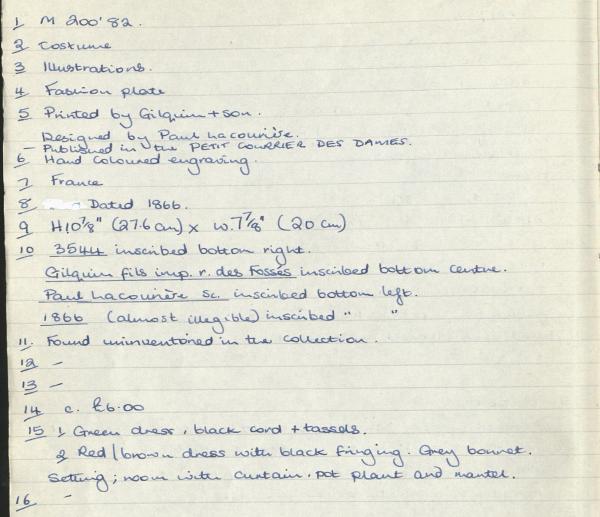 1 M 200'82.
2 Costume
3 Illustrations.
4 Fashion plate
5 Printed by Gilquin + son.
Designed by Paul Lacourière.
- Published in the PETIT COURRIER DES DAMES.
6 Hand coloured engraving.
7 France
8 Dated 1866.
9 H 10 7/8" (27.6 cm) x W. 7 7/8" (20 cm)
10 3544 inscribed bottom right.
Gilquin fils imp. r. des Fossés inscribed bottom centre.
Paul Lacourière Sc. inscribed bottom left.
1866 (almost illegible) inscribed " "
11. Found uninventoried in the collection.
12 -
13 -
14 c. £6.00
15 1 Green dress, black cord + tassels.
2 Red/brown dress with black fringing. Grey bonnet.
Setting; room with curtain, pot plant and mantel.
16 -